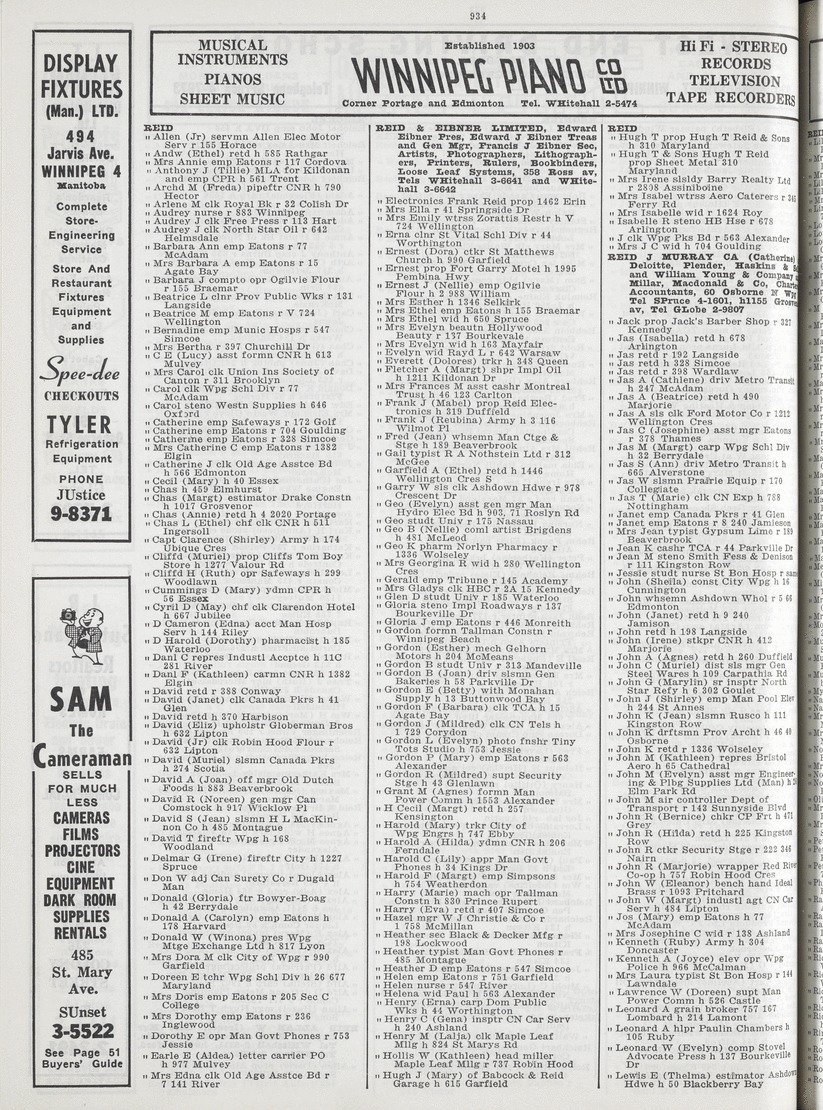 934
DISPLAY
FIXTURES
(Man.) LTD.
494
Jarvis Ave.
WINNIPEG 4
Manitoba
Complete
Store-
Engineering
Service
Store And
Restaurant
Fixtures
Equipment
and
Supplies
Spee-dee
CHECKOUTS
TYLER
Refrigeration
Equipment
PHONE
JUstice
9-8371
SAM
The
Cameraman
SELLS
FOR MUCH
LESS
CAMERAS
FILMS
PROJECTORS
CINE
EQUIPMENT
DARK ROOM
SUPPLIES
RENTALS
485
St. Mary
Ave.
SUnset
3-5522
See Page 51
Buyers' Guide
MUSICAL
INSTRUMENTS
PIANOS
SHEET MUSIC
Established 1903
WINNIPEG PIANO CO LTD
Corner Portage and Edmonton Tel. WHitehall 2-5474
Hi Fi - STEREO
RECORDS
TELEVISION
TAPE RECORDERS
REID
" Allen (Jr) servmn Allen Elec Motor
Serv r 155 Horace
" Andw (Ethel) retd h 585 Rathgar
" Mrs Annie emp Eatons r 117 Cordova
" Anthony J (Tillie) MLA for Kildonan
and emp CPR h 561 Trent
" Archd M (Freda) pipeftr CNR h 790
Hector
" Arlene M clk Royal Bk r 32 Colish Dr
" Audrey nurse r 883 Winnipeg
" Audrey J clk Free Press r 113 Hart
" Audrey J clk North Star Oil r 642
Helmsdale
" Barbara Ann emp Eatons r 77
McAdam
" Mrs Barbara A emp Eatons r 15
Agate Bay
" Barbara J compto opr Ogilvie Flour
r 155 Braemar
" Beatrice L clnr Prov Public Wks r 131
Langside
" Beatrice M emp Eatons r V 724
Wellington
" Bernadine emp Music Hosps r 547
Simcoe
" Mrs Bertha r 397 Churchill Dr
" C E (Lucy) asst formn CNR h 613
Mulvey
" Mrs Carol clk Union Ins Society of
Canton r 311 Brooklyn
" Carol clk Wpg Schl Div r 77
McAdam
" Carol steno Westn Supplies h 646
Oxford
" Catherine emp Safeways r 172 Golf
" Catherine emp Eatons r 704 Goulding
" Catherine emp Eatons r 328 Simcoe
" Mrs Catherine C emp Eatons r 1382
Elgin
" Catherine J clk Old Age Asstce Bd
h 566 Edmonton
" Cecil (Mary) h 40 Essex
" Chas h 459 Elmhurst
" Chas (Margt) estimator Drake Constn
h 1017 Grosvenor
" Chas (Annie) retd h 4 2020 Portage
" Chas L (Ethel) chf clk CNR h 511
Ingersoll
" Capt Clarence (Shirley) Army h 174
Ubique Cres
" Cliffd (Muriel) prop Cliffs Tom Boy
Store h 1277 Valour Rd
" Cliffd H (Ruth) opr Safeways h 299
Woodlawn
" Cummings D (Mary) ydmn CPR h
56 Essex
" Cyril D (May) chf clk Clarendon Hotel
h 667 Jubilee
" D Cameron (Edna) acct Man Hosp
Serv h 144 Riley
" D Harold (Dorothy) pharmacist h 185
Waterloo
" Danl C repres Industl Accptce h 11C
281 River
" Danl F (Kathleen) carmn CNR h 1382
Elgin
" David retd r 388 Conway
" David (Janet) clk Canada Pkrs h 41
Glen
" David retd h 370 Harbison
" David (Eliz) upholstr Globerman Bros
h 632 Lipton
" David (Jr) clk Robin Hood Flour r
632 Lipton
" David (Muriel) slsmn Canada Pkrs
h 274 Scotia
" David A (Joan) off mgr Old Dutch
Foods h 883 Beaverbrook
" David R (Noreen) gen mgr Can
Comstock h 917 Wicklow Pl
" David S (Jean) slsmn H L MacKin-
non Co h 485 Montague
" David T fireftr Wpg h 168
Woodland
" Delmar G (Irene) fireftr City h 1227
Spruce
" Don W adj Can Surety Co r Dugald
Man
" Donald (Gloria) ftr Bowyer-Boag
h 42 Berrydale
" Donald A (Carolyn) emp Eatons h
178 Harvard
" Donald W (Winona) pres Wpg
Mtge Exchange Ltd h 817 Lyon
" Mrs Dora M clk City of Wpg r 990
Garfield
" Doreen E tchr Wpg Schl Div h 26 677
Maryland
" Mrs Doris emp Eatons r 205 Sec C
College
" Mrs Dorothy emp Eatons r 236
Inglewood
" Dorothy E opr Man Govt Phones r 753
Jessie
" Earle E (Aldea) letter carrier PO
h 977 Mulvey
" Mrs Edna clk Old Age Asstce Bd r
7 141 River
REID & EIBNER LIMITED, Edward
Eibner Pres, Edward J Eibner Treas
and Gen Mgr, Francis J Eibner Sec,
Artists, Photographers, Lithograph-
ers, Printers, Rulers, Bookbinders,
Loose Leaf Systems, 358 Ross av,
Tels WHitehall 3-6641 and WHite-
hall 3-6642
" Electronics Frank Reid prop 1462 Erin
" Mrs Ella r 41 Springside Dr
" Mrs Emily wtrss Zorattis Restr h V
724 Wellington
" Erna clnr St Vital Schl Div r 44
Worthington
" Ernest (Dora) ctkr St Matthews
Church h 990 Garfield
" Ernest prop Fort Garry Motel h 1995
Pembina Hwy
" Ernest J (Nellie) emp Ogilvie
Flour h 2 988 William
" Mrs Esther h 1346 Selkirk
" Mrs Ethel emp Eatons h 155 Braemar
" Mrs Ethel wid h 650 Spruce
" Mrs Evelyn beautn Hollywood
Beauty r 137 Bourkevale
" Mrs Evelyn wid h 163 Mayfair
" Evelyn wid Rayd L r 642 Warsaw
" Everett (Dolores) trkr h 348 Queen
" Fletcher A (Margt) shpr Impl Oil
h 1211 Kildonan Dr
" Mrs Frances M asst cashr Montreal
Trust h 46 123 Carlton
" Frank J (Mabel) prop Reid Elec-
tronics h 319 Duffield
" Frank J (Reubina) Army h 3 116
Wilmot Pl
" Fred (Jean) whsemn Man Ctge &
Stge h 189 Beaverbrook
" Gail typist R A Nothstein Ltd r 312
McGee
" Garfield A (Ethel) retd h 1446
Wellington Cres S
" Garry W sls clk Ashdown Hdwe r 978
Crescent Dr
" Geo (Evelyn) asst gen mgr Man
Hydro Elec Bd h 903, 71 Roslyn Rd
" Geo studt Univ r 175 Nassau
" Geo B (Nellie) coml artist Brigdens
h 481 McLeod
" Geo K pharm Norlyn Pharmacy r
1336 Wolseley
" Mrs Georgina R wid h 280 Wellington
Cres
" Gerald emp Tribune r 145 Academy
" Mrs Gladys clk HBC r 2A 15 Kennedy
" Glen D studt Univ r 185 Waterloo
" Gloria steno Impl Roadways r 137
Bourkevale Dr
" Gloria J emp Eatons r 446 Monreith
" Gordon formn Tallman Constn r
Winnipeg Beach
" Gordon (Esther) mech Gelhorn
Motors h 204 McMeans
" Gordon B studt Univ r 313 Mandeville
" Gordon B (Joan) driv slsmn Gen
Bakeries h 58 Parkville Dr
" Gordon E (Betty) with Monahan
Supply h 13 Buttonwood Bay
" Gordon F (Barbara) clk TCA h 15
Agate Bay
" Gordon J (Mildred) clk CN Tels h
1 729 Corydon
" Gordon L (Evelyn) photo fnshr Tiny
Tots Studio h 753 Jessie
" Gordon P (Mary) emp Eatons r 563
Alexander
" Gordon R (Mildred) supt Security
Stge h 43 Glenlawn
" Grant M (Agnes) formn Man
Power Comm h 1553 Alexander
" H Cecil (Margt) retd h 257
Kensington
" Harold (Mary) trkr City of
Wpg Engrs h 747 Ebby
" Harold A (Hilda) ydmn CNR h 206
Ferndale
" Harold C (Lily) appr Man Govt
Phones h 34 Kings Dr
" Harold F (Margt) emp Simpsons
h 754 Weatherdon
" Harry (Marie) mach opr Tallman
Constn h 830 Prince Rupert
" Harry (Eva) retd r 407 Simcoe
" Hazel mgr W J Christie & Co r
1 758 McMillan
" Heather sec Black & Decker Mfg r
198 Lockwood
" Heather typist Man Govt Phones r
485 Montague
" Heather D emp Eatons r 547 Simcoe
" Helen emp Eatons r 751 Garfield
" Helen nurse r 547 River
" Helena wid Paul h 563 Alexander
" Henry (Erna) carp Dom Public
Wks h 44 Worthington
" Henry C (Gena) insptr CN Car Serv
h 240 Ashland
" Henry M (Lalja) clk Maple Leaf
Mllg h 824 St Marys Rd
" Hollis W (Kathleen) head miller
Maple Leaf Mllg r 737 Robin Hood
" Hugh J (Mary) of Babcock & Reid
Garage h 615 Garfield
REID
" Hugh T prop Hugh T Reid & Sons
h 310 Maryland
" Hugh T & Sons Hugh T Reid
prop Sheet Metal 310
Maryland
" Mrs Irene slsldy Barry Realty Ltd
r 2898 Assiniboine
" Mrs Isabel wtrss Aero Caterers r 345
Ferry Rd
" Mrs Isabelle wid r 1624 Roy
" Isabelle R steno HB Hse r 678
Arlington
" J clk Wpg Pks Bd r 563 Alexander
" Mrs J C wid h 704 Goulding
REID J MURRAY CA (Catherine)
Deloitte, Plender, Haskins &
and William Young & Company
Millar, Macdonald & Co,
Accountants, 60 Osborne N
Tel SPruce 4-1601, h1155
av, Tel GLobe 2-9807
" Jack prop Jack's Barber Shop r 327
Kennedy
" Jas (Isabella) retd h 678
Arlington
" Jas retd r 192 Langside
" Jas retd h 328 Simcoe
" Jas retd r 398 Wardlaw
" Jas A (Cathlene) driv Metro Transit
h 247 McAdam
" Jas A (Beatrice) retd h 490
Marjorie
" Jas A sls clk Ford Motor Co r 1212
Wellington Cres
" Jas C (Josephine) asst mgr Eatons
r 378 Thames
" Jas M (Margt) carp Wpg Schl Div
h 32 Berrydale
" Jas S (Ann) driv Metro Transit h
665 Alverstone
" Jas W slsmn Prairie Equip r 170
Collegiate
" Jas T (Marie) clk CN Exp h 788
Nottingham
" Janet emp Canada Pkrs r 41 Glen
" Janet emp Eatons r 8 240 Jamieson
" Mrs Jean typist Gypsum Lime r 189
Beaverbrook
" Jean K cashr TCA r 44 Parkville Dr
" Jean M steno Smith Fess & Denison
r 111 Kingston Row
" Jessie studt nurse St Bon Hosp r
" John (Sheila) const City Wpg h 16
Cunnington
" John whsemn Ashdown Whol r 5 66
Edmonton
" John (Janet) retd h 9 240
Jamison
" John retd h 198 Langside
" John (Irene) stkpr CNR h 412
Marjorie
" John A (Agnes) retd h 260 Duffield
" John C (Muriel) dist sls mgr Gen
Steel Wares h 109 Carpathia Rd
" John G (Marylin) sr insptr North
Star Refy h 6 302 Goulet
" John J (Shirley) emp Man Pool Elev
h 244 St Annes
" John K (Jean) slsmn Rusco h 111
Kingston Row
" John K drftsmn Prov Archt h 46 40
Osborne
" John K retd r 1336 Wolseley
" John M (Kathleen) repres Bristol
Aero h 65 Cathedral
" John M (Evelyn) asst mgr Engineer-
ing & Plbg Supplies Ltd (Man) h
Elm Park Rd
" John M air controller Dept of
Transport r 143 Sunnyside Blvd
" John R (Bernice) chkr CP Frt h 471
Grey
" John R (Hilda) retd h 225 Kingston
Row
" John R ctkr Security Stge r 222 346
Nairn
" John R (Marjorie) wrapper Red River
Co-op h 757 Robin Hood Cres
" John W (Eleanor) bench hand Ideal
Brass r 1093 Pritchard
" John W (Margt) industl agt CN Car
Serv h 484 Lipton
" Jos (Mary) emp Eatons h 77
McAdam
" Mrs Josephine C wid r 138 Ashland
" Kenneth (Ruby) Army h 304
Doncaster
" Kenneth A (Joyce) elev opr Wpg
Police h 966 McCalman
" Mrs Laura typist St Bon Hosp r 144
Lawndale
" Lawrence W (Doreen) supt Man
Power Comm h 526 Castle
" Leonard A grain broker 757 167
Lombard h 214 Lamont
" Leonard A hlpr Paulin Chambers h
105 Ruby
" Leonard W (Evelyn) comp Stovel
Advocate Press h 137 Bourkeville
Dr
" Lewis E (Thelma) estimator Ashdown
Hdwe h 50 Blackberry Bay